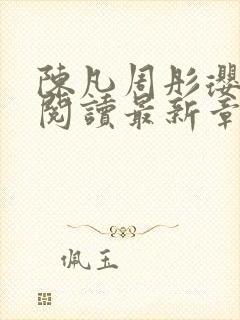 陳凡周彤瓔
閱讀最新章
佩玉